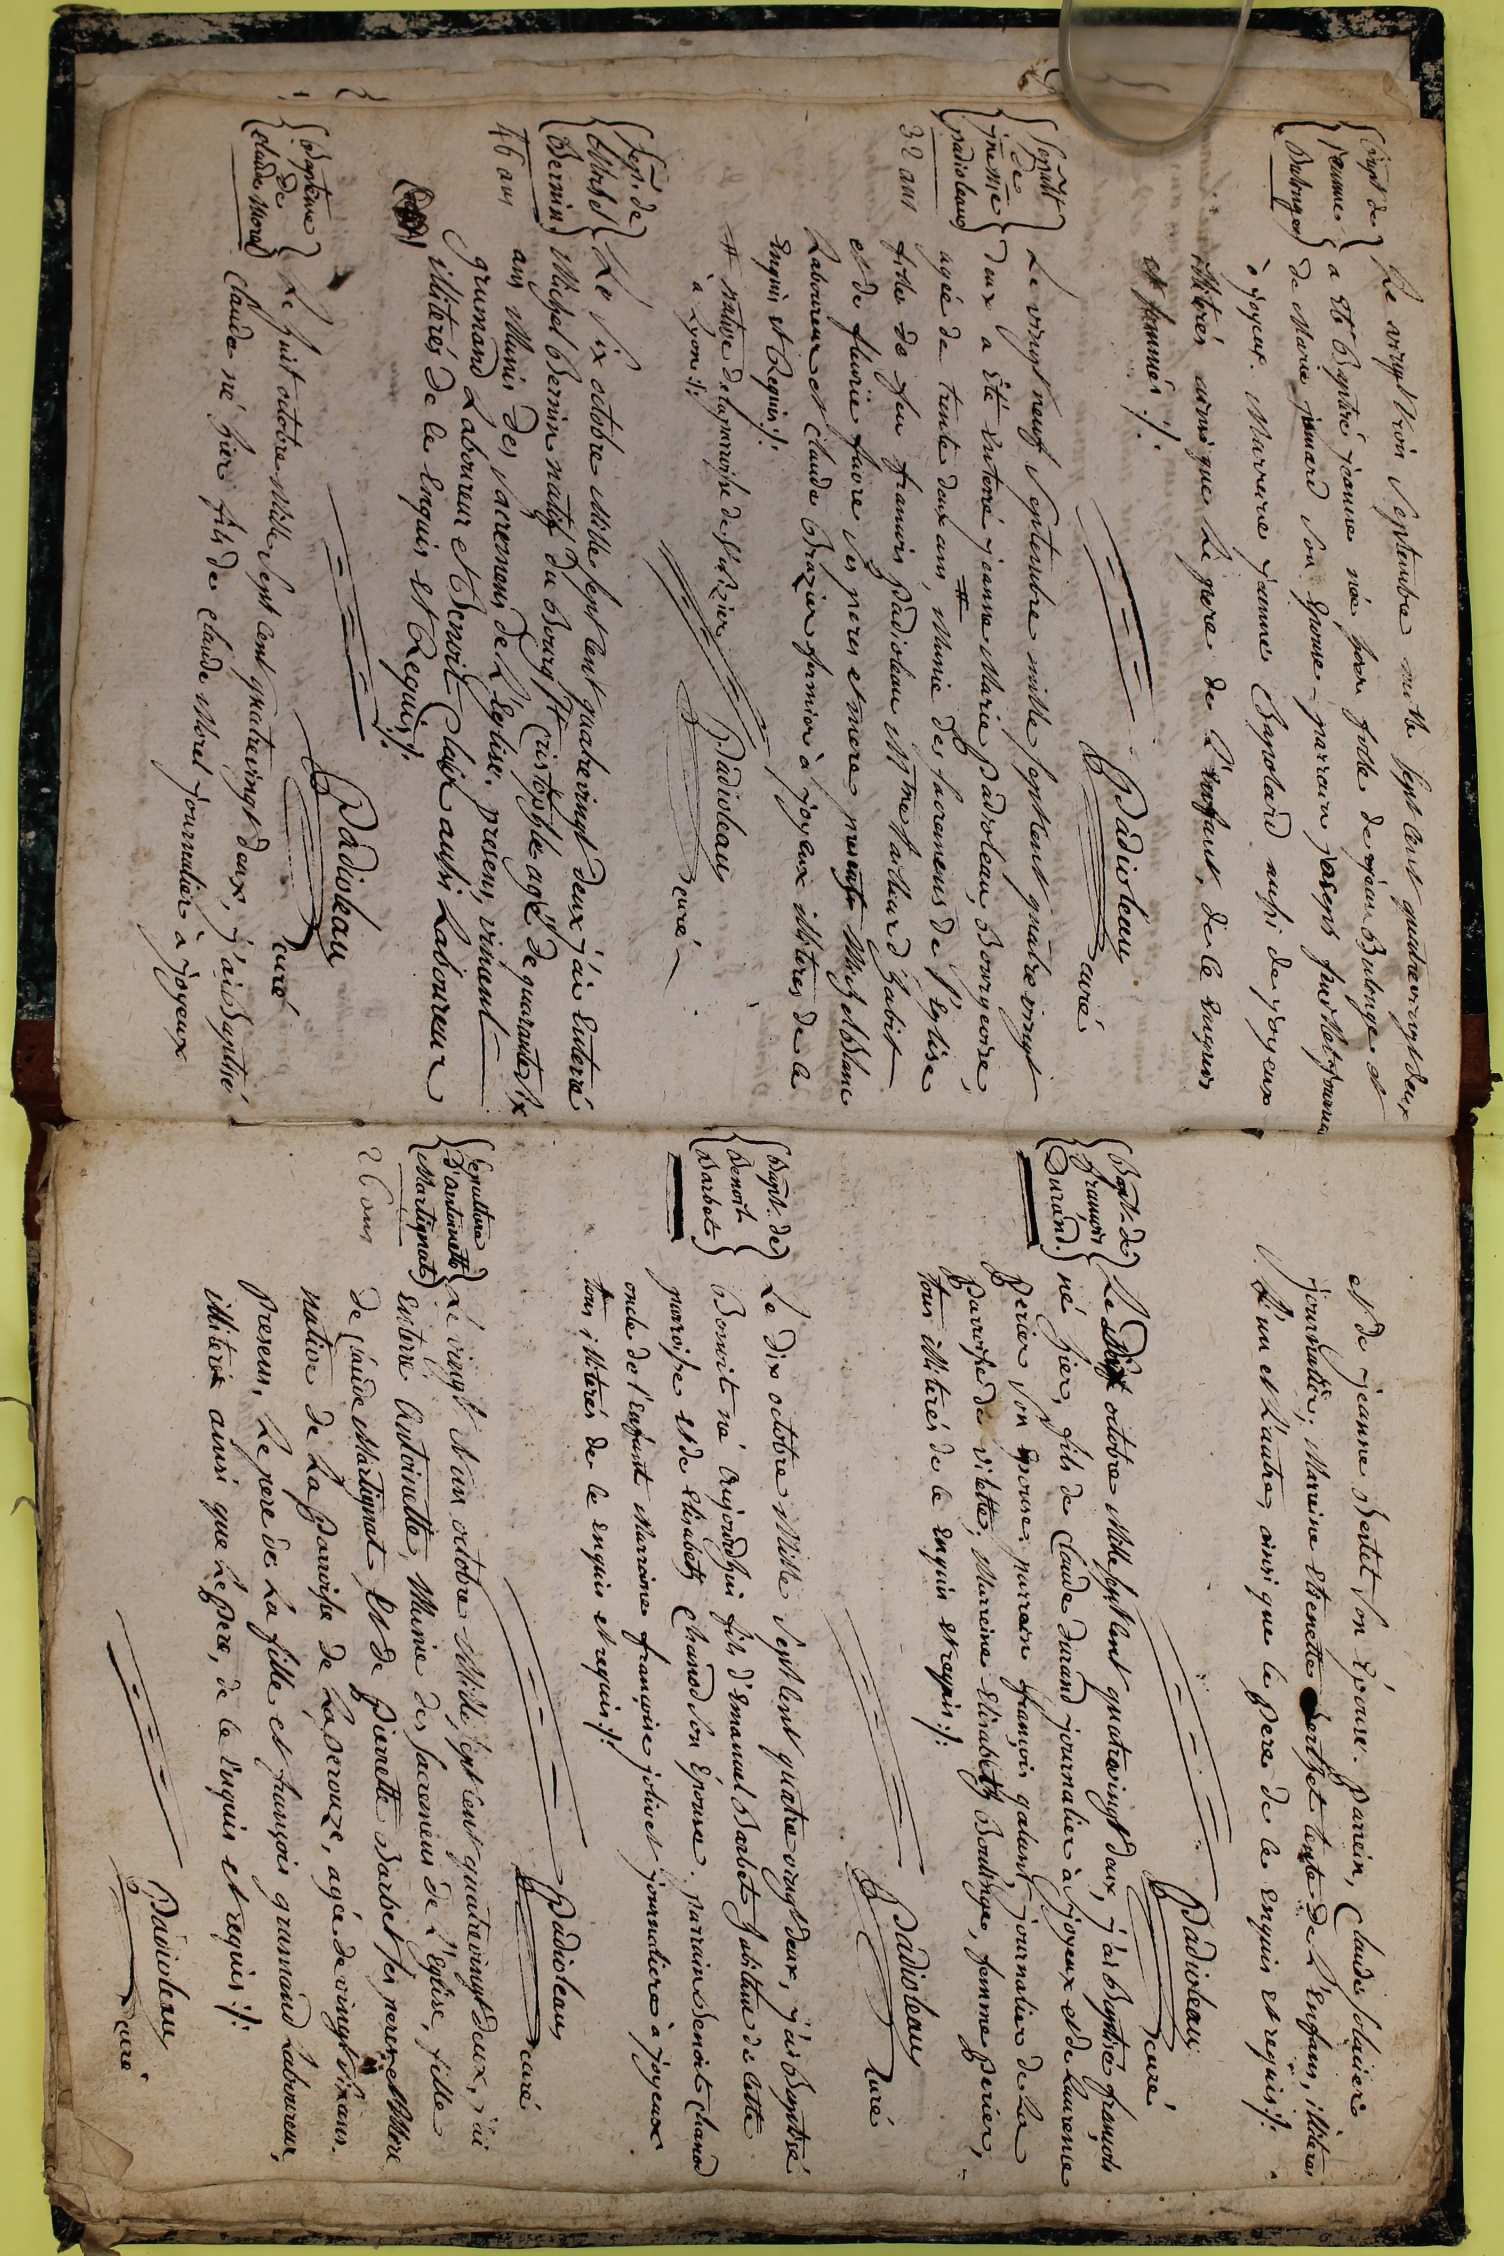 Bapt. de
jeanne
Bulonge
Le vingt trois septembre mille sept cent quatrevingt deux
a été baptisé jeanne née hier fille de jean Bulonge et
de Marie jomard son Epouse parrain joseph
à joyeux. Marreine jeanne Bapolard aussi de joyeux
illiterés ainsi que le pere de l'enfant, de le enquis
et sommés ./.
Padioleau
curé
Sepult
de
jne Me
padioleau
32 ans
Le vingt neuf septembre mille sept cent quatre vingt
deux a été enterré jeanne Marie Padioleau, Bourgeoise
agée de trente deux ans, # Munie des sacremens de l'Eglise
fille de feu francois Padioleau habit
et de fleurie favre ses peres et mere presents Michel Blanc
Laboureur et Claude Brazier fermier à joyeux illiteres de le
enquis et Requis ./.
# native de la paroisse de
à Lyon ./.
Padioleau
curé
Sep. de
Michel
Bernin
46 ans
Le six octobre mille sept cent quatre vingt deux j'ai enterré
Michel Bernin natif du Bourg St Cristophle agé de quarante six
ans Munis des sacremens de l'Eglise. presens, vincent
grumand Laboureur et Benoit Claix aussi Laboureur
illiterés de le enquis et Requis ./.
Padioleau
curé
Bapteme
de
claude Morel
Le huit octobre mille sept cent quatrevingt deux, j'ai Baptisé
Claude né hier fils de claude Morel journalier à joyeux
et de jeanne Bertet son Epouse. Parrein, Claude
journalier, Marreine Etienette Berthet tente de l'Enfans, illiteres
l'un et l'autre, ainsi que le Pere de le enquis et requis ./.
Padioleau
curé
Bapt. de
francois
Durand.
Le Dix octobre Mille sept cent quatrevingt deux, j'ai Baptisé francois
né hier, fils de Claude durand journalier à joyeux et de Laurence
Perier son Epouse, parrain françois galand, journalier de la
Parroisse de vilette, Marreine Elisabeth Boulinge, femme Perier,
tous illiterés de le enquis et requis ./.
Padioleau
curé
Bapt. de
Benoit
Barbet
Le dix octobre Mille sept cent quatre vingt deux, j'ai Baptisé
Benoit né aujourdhui fils d'Emanuel Barbet habitant de cette
paroisse et de Elisabeth Chanod son Epouse. parrain Benoit Chanod
oncle de l'enfant Marreine françoise jolivet journaliere à joyeux
tous illiterés de le enquis et requis ./.
Padioleau
curé
Sepulture
D'antoinette
Martignat
26 ans
Le vingt et un octobre Mille sept cent quatrevingt deux, j'ai
enterré Antoinette, Munie des sacremens de l'Eglise, fille
de claude Martignat, et de Pierrette Barbet ses pere et Mere
native de La Parroisse de La perouze, agée de vingt six ans.
Presens, Le pere de La fille et françois grumand Laboureur,
illiteré ainsi que Le Pere, de le Enquis et requis ./.
Padioleau
curé